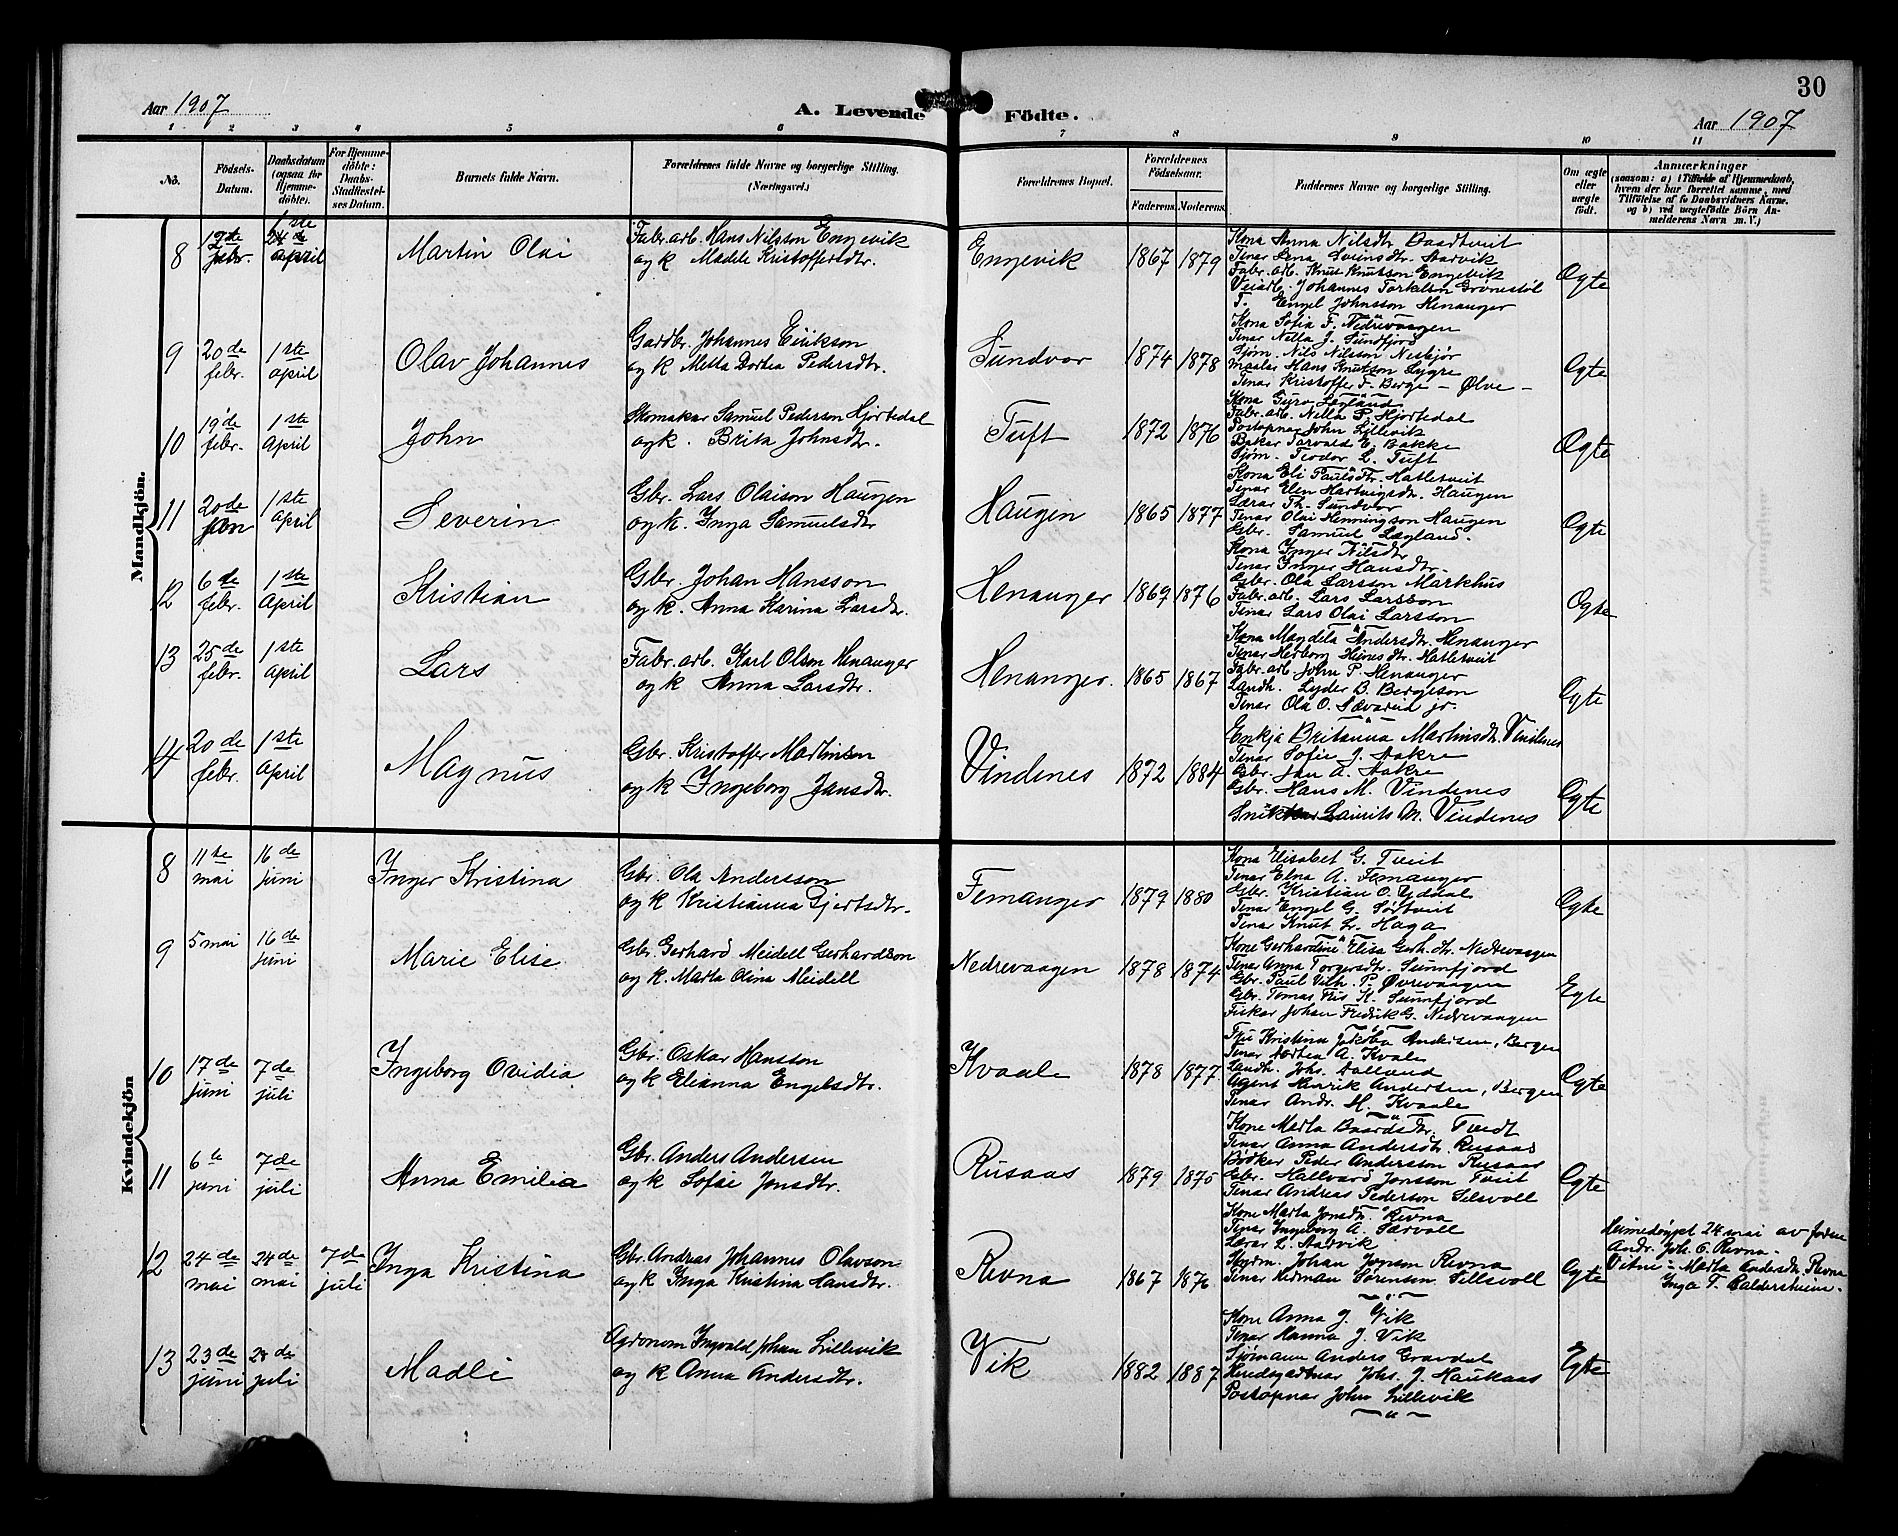 30
Aar 1907
A. Levende Födte.
Aar 1907
1 2 3 4 5 6 7 8 9 10 11
No.
Födsels-Datum.
Daabsdatum (ogsaa for Hjemmedöbte).
For Hjemmedöbte: Daabs-Stadfæstelses Datum.
Barnets fulde Navn.
Forældrenes fulde Navne og borgerlige Stilling. (Næringsvei.)
Forældrenes Bopæl.
Forældrenes Födselsaar.
Faderens. Moderens.
Faddernes Navne og borgerlige Stilling.
Om ægte eller uægte födt.
Anmærkninger
(saasom: a) i Tilfælde af Hjemmedaab, hvem der har forrettet samme, med Tilföielse af to Daabsvidners Navne, og b) ved uægtefödte Börn Anmelderens Navn m. V.)
Mandkjön.
8 12te febr. 1ste april Martin Olai
Fabr. arb. Hans Nilsson Engevik
og k Madele Kristoffersdtr.
Engevik 1867 1879
Kona Anna Nilsdtr Baadtveit
Tenar Lena Sveinsdtr. Aarvik
Fabr. arb. Knut Knutson Engevik
Veiarb. Johannes Torkelson Grönestöl
T. Engel Johnsson Henanger
Egte
9 20de febr. 1ste april Olav Johannes
Gardbr. Johannes Eirikson
og k Metta Dortea Pedersdtr.
Sundvor 1874 1878
Kona Sofia F. Nedrevaagen
Tenar Nella J. Sundfjord
Sjøm. Nils Nilsson Neshjør
Maalar Hans Knutson Lygre
Tenar Kristoffer F. Berge - Ølve -
Egte
10 19de febr. 1ste April John
Skomakar Samuel Pederson Hjortedal
og k. Brita Johnsdtr.
Tuft 1872 1876
Kona Guro Lægland
Fabr. arb. Nella P. Hjortedal
Postopnar John Lillevik
Bakar Torvald E. Bakke
Sjøm. Teodor L. Tuft
Egte
11 20de jan 1ste April Severin
Gbr. Lars Olaison Haugen
og k. Inga Samuelsdtr
Haugen 1865 1877
Kona Eli Paulsdtr. Hatletveit
Tenar Elen Hartvigsdtr. Haugen
Lærar Th. Sundvor
Tenar Olai Henningson Haugen
Gbr. Samuel Lægland.
Egte
12 6de febr. 1ste April Kristian
Gbr. Johan Hansson
og k. Anna Karina Larsdtr.
Henanger 1869 1876
Kona Inger Nilsdtr
Tenar Inger Hansdtr.
Gbr. Ola Larsson Markhus
Fabr. arb. Lars Larsson
Tenar Lars Olai Larsson
Egte
13 25de febr. 1ste April Lars
Fabr. arb. Karl Olson Henanger
og k Anna Larsdtr.
Henanger. 1865 1867
Kona Magdela Andersdtr. Henanger
Tenar Herborg Heinesdtr. Hatletveit
Fabr. arb. John P. Henanger
Landh. Lyder B. Bergeson
Tenar Ola O. Sævareid jr.
Egte
14 20de febr. 1ste April Magnus
Gbr. Kristoffer Martinson
og k Ingeborg Jansdtr.
Vindenes 1872 1884
Enkja Britanna Martinsdtr. Vindenes
Tenar Sofie J. Aakre
Gbr. Jan A. Aakre
Gbr. Hans M. Vindenes
Snikkar Laurits M. Vindenes
Egte
Kvindekjön
8 11te mai 16de juni Inger Kristina
Gbr. Ola Andersson
og k Kristianna Gjertsdtr.
Femanger 1879 1880
Kona Elisabet G. Tveit
Tenar Elna A. Femanger
Gbr. Kristian O. Eydal
Tenar Engel G. Sörtveit
Tenar Knut L. Haga
Egte
9 5 mai 16de juni Marie Elise
Gbr. Gerhard Meidell Gerhardson
og k. Marta Olina Meidell
Nedrevaagen 1878 1874
Kone Gerhardine Elisa Gerh.dtr. Nedrevaagen
Tenar Anna Torgersdtr. Sunnfjord
Gbr. Paul Vilh. P. Øvrevaagen
Gbr. Tomas Friis K. Sunnfjord
Fiskar Johan Fredrik G. Nedrevaagen
Egte
10 17de juni 7de juli Ingeborg Ovidia
Gbr. Oskar Hansson
og k Elianna Engelsdtr.
Kvaale 1878 1877
Fru Kristina Jakoba Andersen, Bergen
Tenar Dortea A. Kvale
Landh. Johs. Aalland
Agent Henrik Andersen, Bergen
Tenar Andr. H. Kvaale
Egte
11 6te juni 7de juli Anna Emilia
Gbr. Anders Andersen
og k Sofie Jonsdtr.
Rusaas 1879 1875
Kone Marta Baardsdtr. Tveidt
Tenar Anna Andersdtr. Rusaas
Bödker Peder Andersson Rusaas
Gbr. Hallvard Jonsson Tveit
Tenar Andreas Pederson Selsvoll
Egte
12 24de mai 24de mai 7de juli Inga Kristina
Gbr. Andreas Johannes Olavson
og k Inga Kristina Hansdtr.
Revna 1867 1876
Kone Marta Jonsdtr. Revna
Tenar Ingeborg A. Særvoll
Lærar L. Aarvik
Johan Jonson Revna
Tenar Nedman Sörenson Sillsvoll
Egte
Heimedøypt 24 mai av faderen
Andr. Joh. O. Revna.
Vitne: Marta Andersdtr. Revna
Inga T. Baldersheim.
13 23de juni 28de juli Madli
Agronom Ingvald Johan Lillevik
og k Anna Andersdtr.
Vik 1882 1887
Kone Anna J. Vik
Tenar Hanna J. Vik
Sjømann Anders Gravdal
Heradsgadtnar Johs. J. Haukaas
Postopnar John Lillevik
Egte